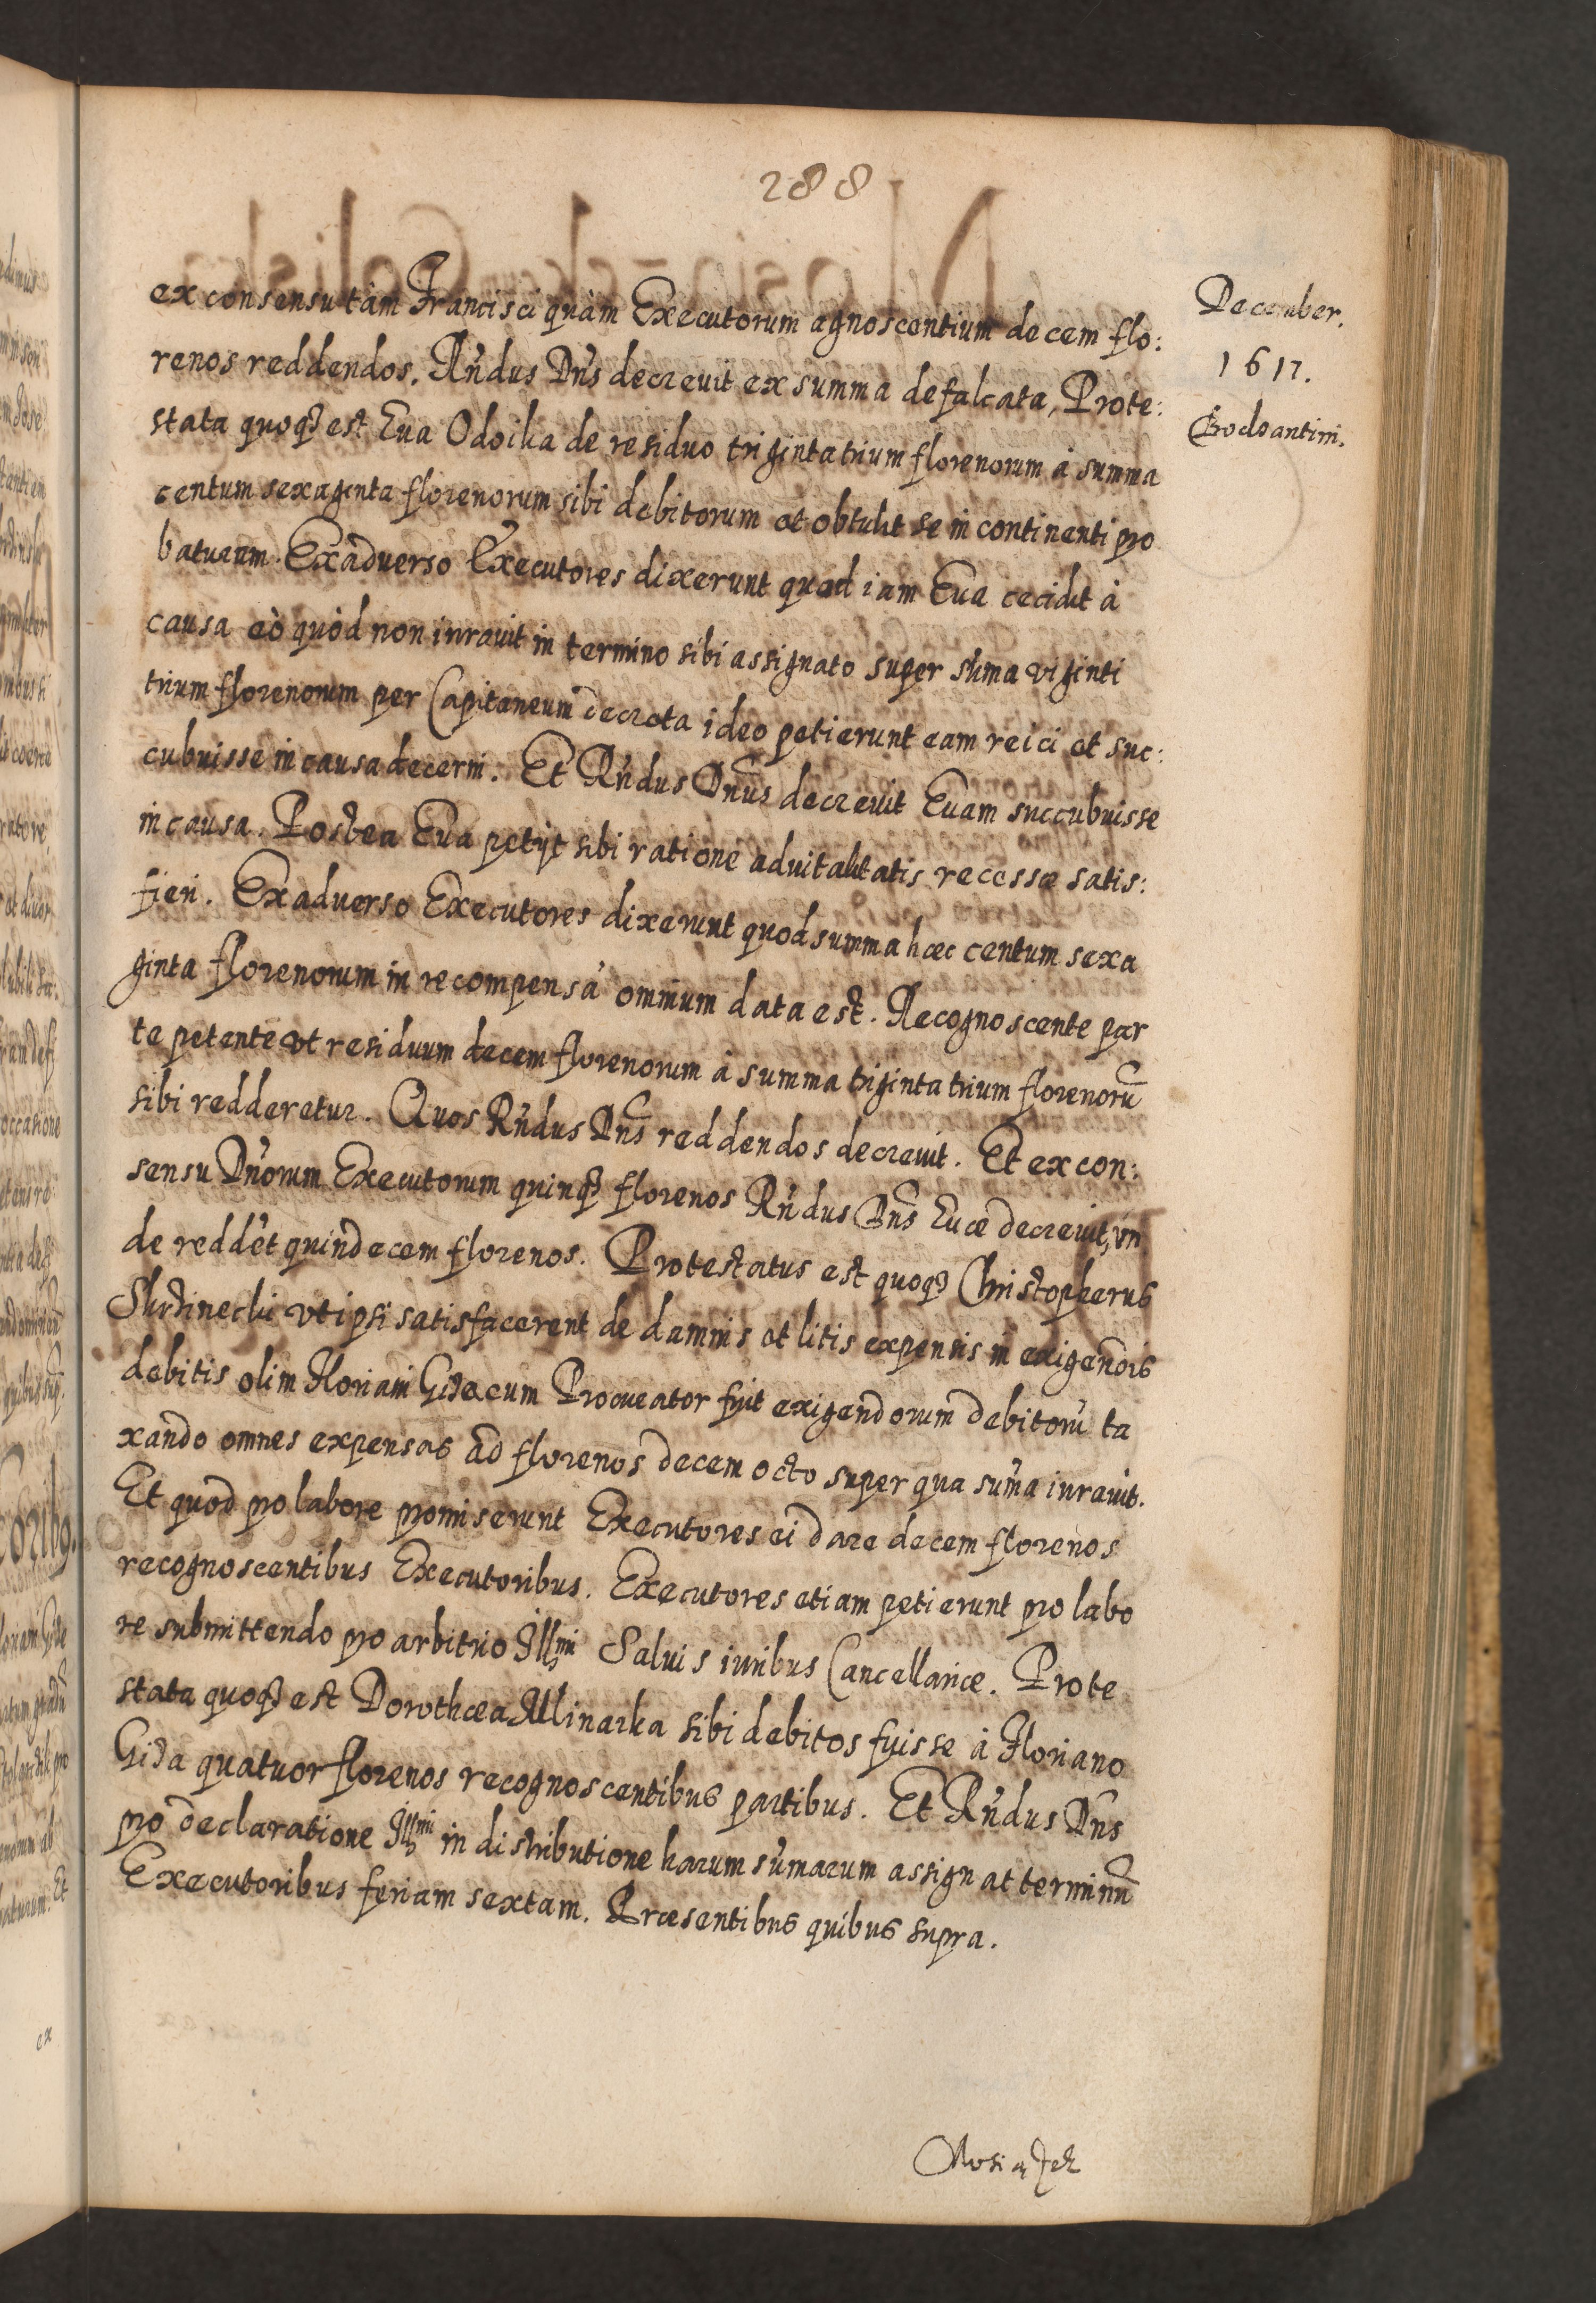 288
December.
1617.
Bodsantini.
ex consensu tàm Francisci quàm Executorum agnoscentium decem flo:
renos reddendos. Rñdus Dñs decrevit ex summa defalcata, Prote:
stata quoqȝ est Eua Odoika de residuo triginta trium florenorum à summa
centum sexaginta florenorum sibi debitorum et obtulit se in continenti pro
baturum. Exaduerso Executores dixerunt quod iam Eua cecidit à
causa eò quòd non iurauit in termino sibi assignato super sũma viginti
trium florenorum per Capitaneum decreta ideo petierunt eam reici et suc:
cubuisse in causa decerni. Et Rñdus Dñus decreuit Euam succubuisse
in causa. Postea Eua petijt sibi ratione aduitalitatis recessæ satis:
fieri. Exaduerso Executores dixerunt quod summa hæc centum sexa
ginta florenorum in recompensã omnium data est. Recognoscente par
te petente vt residuum decem florenorum à summa triginta trium florenorũ
sibi redderetur. Quos Rñdus Dñs reddendos decreuit. Et ex con:
sensu Dñorum Executorum quinqȝ florenos Rñdus Dñs Euæ decreuit, vn
de reddet quindecem florenos. Protestatus est quoqȝ Christopherus
vt ipsi satisfacerent de damnis et litis expensis in exigendis
debitis olim Floriani Gida cum Procurator fuit exigendorum debitorũ ta
xando omnes expensas ad florenos decem octo super qua sum̃a iurauit.
Et quod pro labore promiserunt Executores ei dare decem florenos
recognoscentibus Executoribus. Executores etiam petierunt pro labo
re submittendo pro arbitrio Illmi Saluis iuribus Cancellariæ. Prote
stata quoqȝ est Dorothæa Mlinarka sibi debitos fuisse à Floriano
Gida quatuor florenos recognoscentibus partibus. Et Rñdus Dñs
pro declaratione Illmi in distributione harum sum̃arum assignat terminũ
Executoribus feriam sextam. Præsentibus quibus supra.